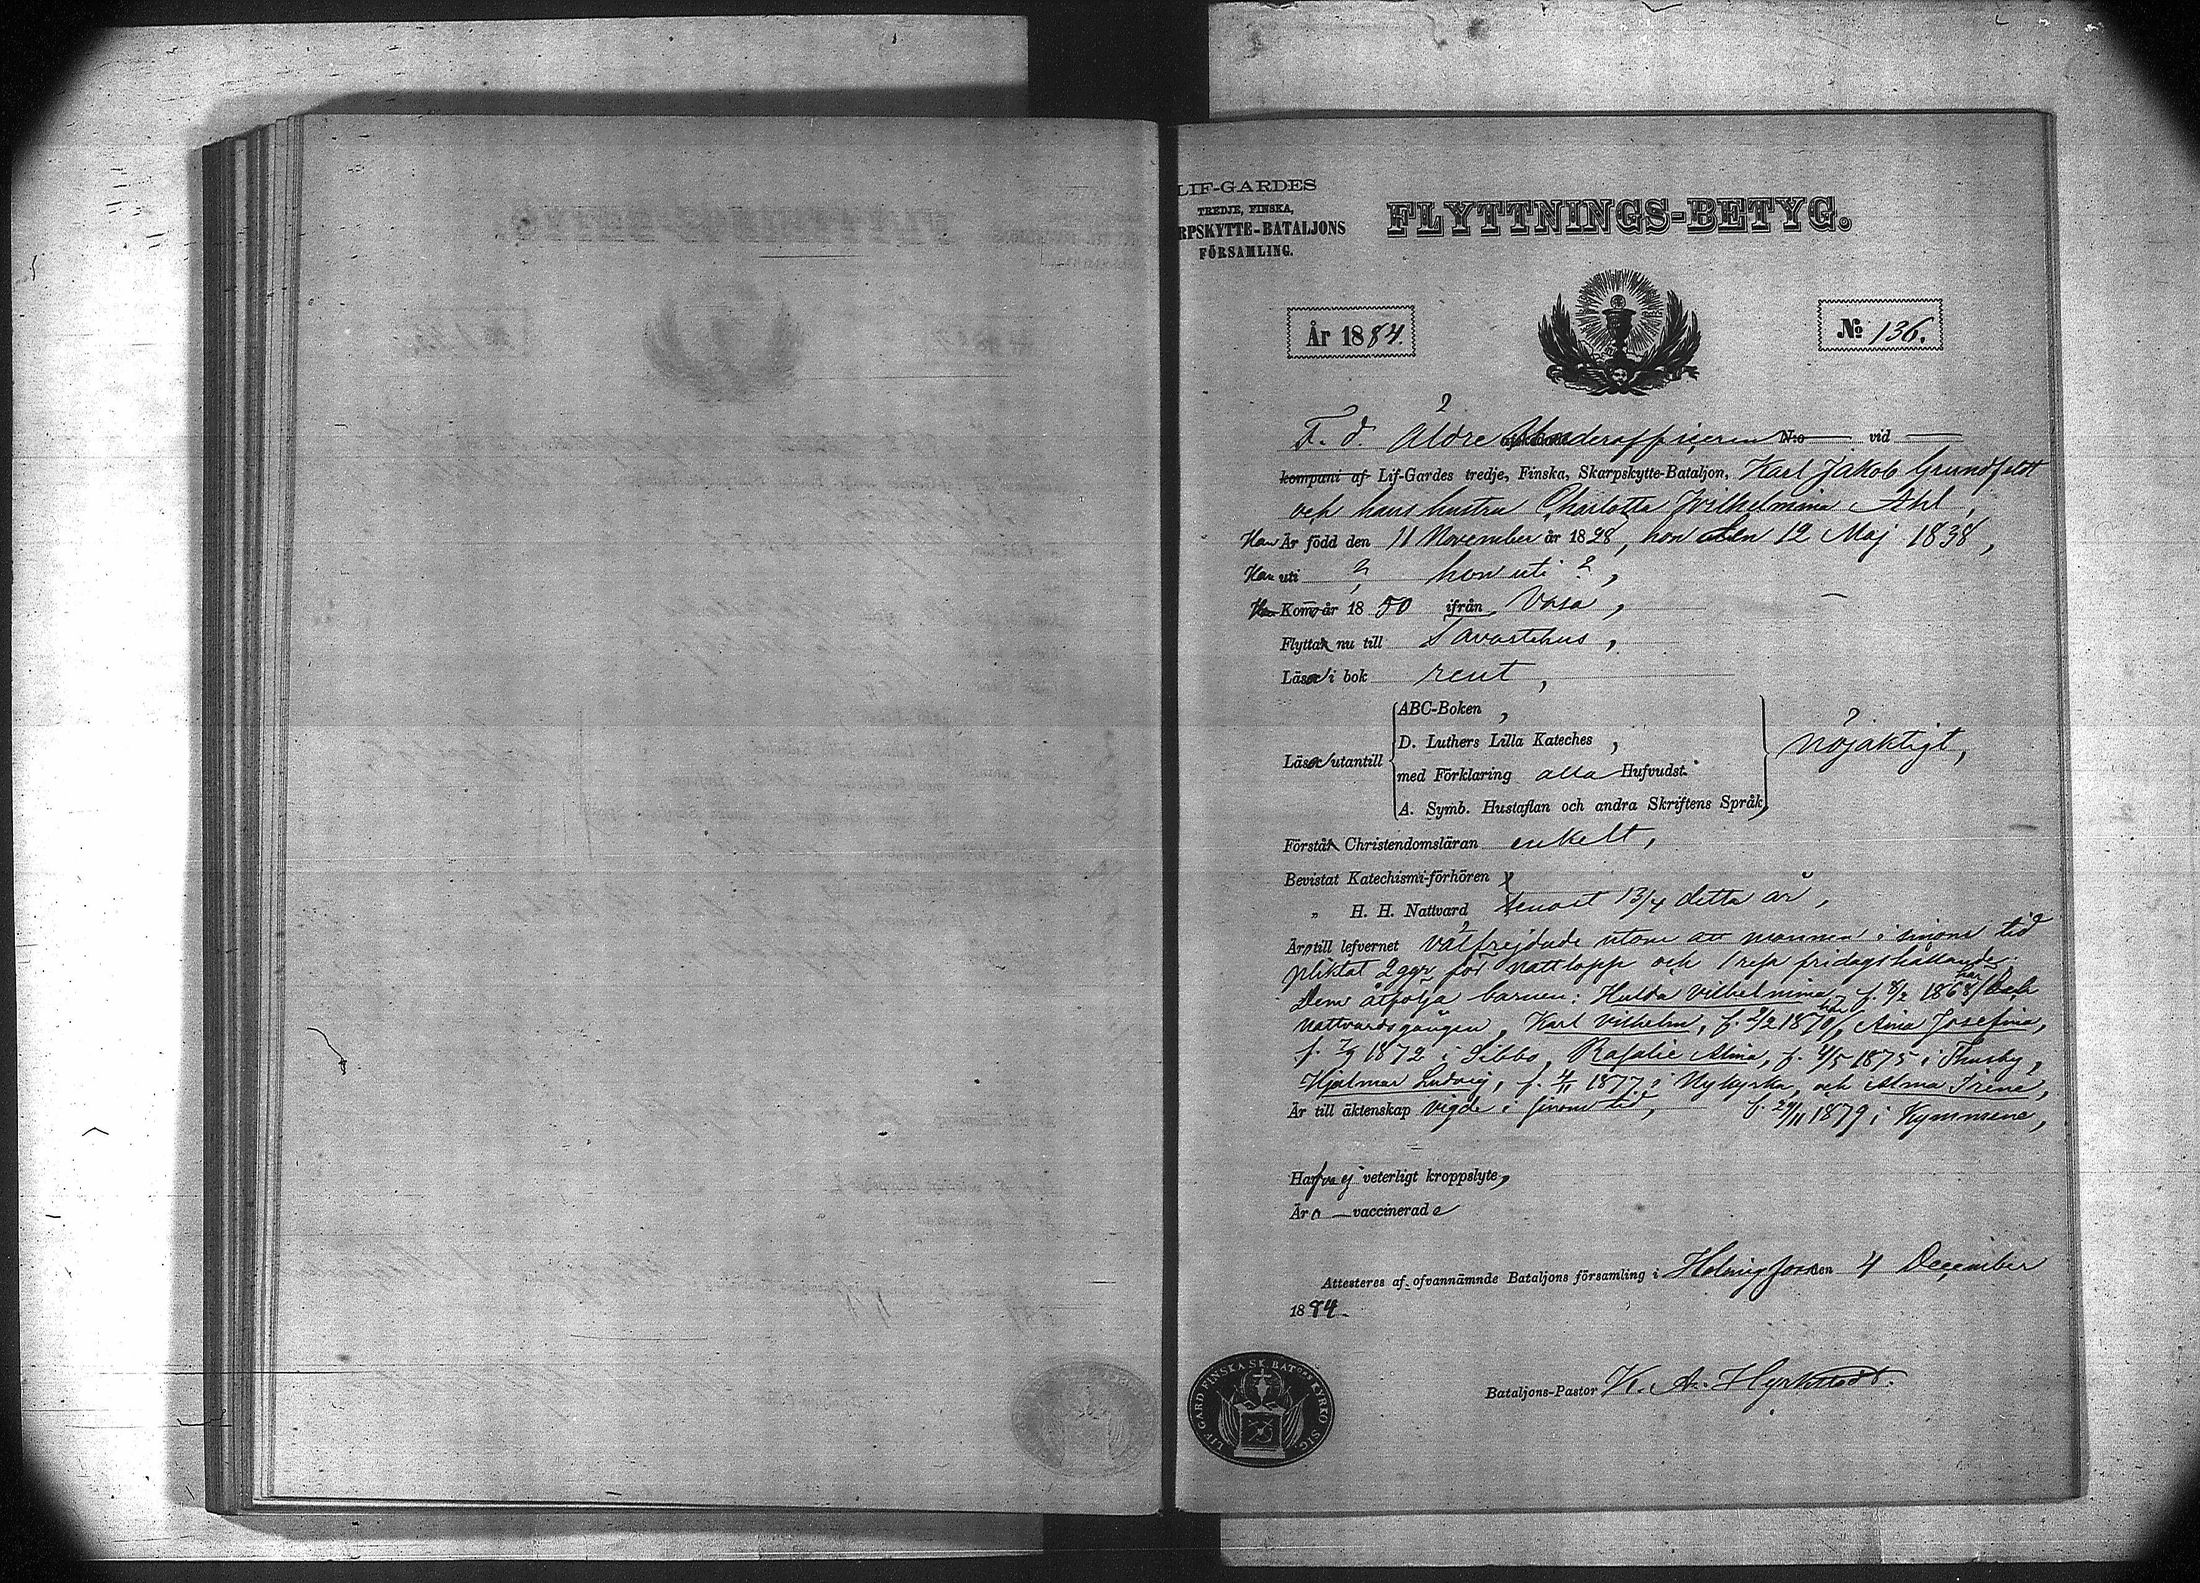 LIF-GARDES
TREDJE, FINSKA,
RPSKYTTE-BATALJONS
FÖRSAMLING.
FLYTTNINGS-BETYG.
År 1884.
№ 136.
F. d. Äldre Underofficeren N:o vid
kompani af Lif-Gardes tredje, Finska, Skarpskytte-Bataljon, Karl Jakob Grundfeldt
och hans hustru Charlotta Wilhelmina Ahl,
Han Är född den 11 November år 1828, hon den 12 Maj 1838,
Han uti ? hon uti ?,
Kom år 1850 ifrån Vasa,
Flytta nu till Tavastehus,
Läsa i bok rent,
ABC-Boken,
D. Luthers Lilla Kateches,
Läsa utantill
med Förklaring alla Hufvudst.
A. Symb. Hustaflan och andra Skriftens Språk,
nöjaktigt,
Förstå Christendomsläran enkelt,
Bevistat Katechismi-förhören
„ H. H. Nattvard senast 13/4 detta år,
Äro till lefvernet välfrejdade utom att mannen i sinom tid
pliktat 2 ggr för nattlopp och 1 resa fridagshållande.
Dem åtfölja barnen: Hulda Vilhelmina, f. 8/2 1868 / har
nattvardsgången, Karl Vilhelm, f. 2/2 1870, Aina Josefina,
f. 7/9 1872 i Sibbo, Rosalie Alina, f. 4/5 1875 i Thusby,
Hjalmar Ludvig, f. 4/11 1877 i Nykyrka, och Alma Irene,
Är till äktenskap vigde i sinom tid, f. 29/11 1879 i Kymmene,
Hafva ej veterligt kroppslyte,
Äro vaccinerade
Attesteras af ofvannämnde Bataljons församling i Helsingfors den 4 December
1884.
Bataljons-Pastor K. A. Hyrkstedt.
LIF GARD FINSKA SK BAT:ns KYRKO SIG.